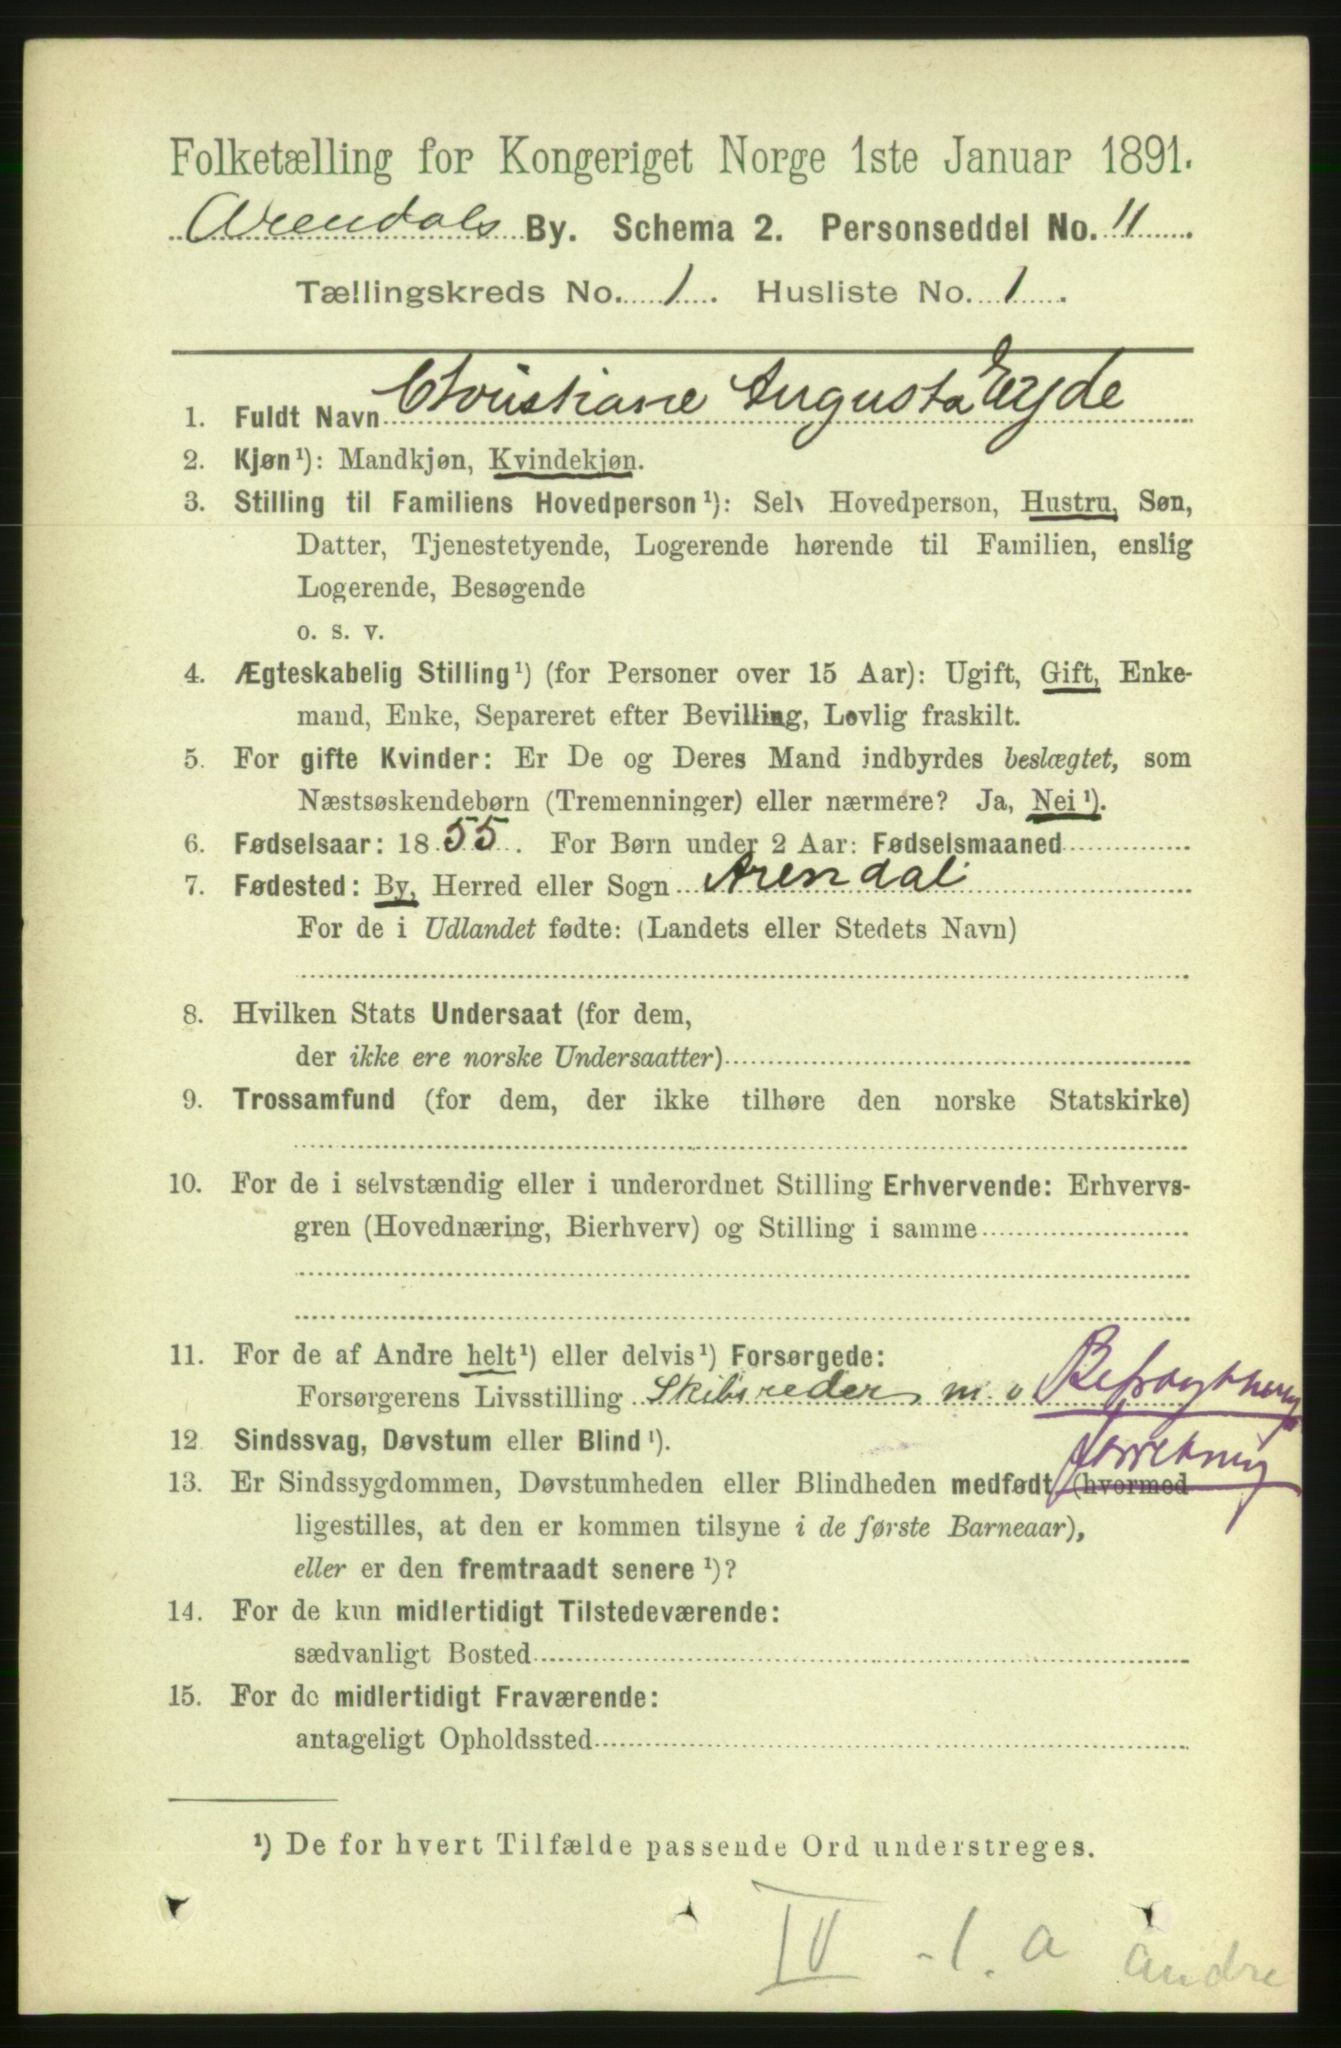 Folketælling for Kongeriget Norge 1ste Januar 1891.
Arendals By. Schema 2. Personseddel No. 11
Tællingskreds No. 1. Husliste No. 1.
1. Fuldt Navn Christiane Augusta Eyde
2. Kjøn¹): Mandkjøn, Kvindekjøn.
3. Stilling til Familiens Hovedperson¹): Selv Hovedperson, Hustru, Søn,
Datter, Tjenestetyende, Logerende hørende til Familien, enslig
Logerende, Besøgende
o. s. v.
4. Ægteskabelig Stilling¹) (for Personer over 15 Aar): Ugift, Gift, Enke-
mand, Enke, Separeret efter Bevilling, Lovlig fraskilt.
5. For gifte Kvinder: Er De og Deres Mand indbyrdes beslægtet, som
Næstsøskendebørn (Tremenninger) eller nærmere? Ja, Nei¹).
6. Fødselsaar: 1855. For Børn under 2 Aar: Fødselsmaaned
7. Fødested: By, Herred eller Sogn Arendal
For de i Udlandet fødte: (Landets eller Stedets Navn)
8. Hvilken Stats Undersaat (for dem,
der ikke ere norske Undersaatter)
9. Trossamfund (for dem, der ikke tilhøre den norske Statskirke)
10. For de i selvstændig eller i underordnet Stilling Erhvervende: Erhvervs-
gren (Hovednæring, Bierhverv) og Stilling i samme
11. For de af Andre helt¹) eller delvis¹) Forsørgede:
Forsørgerens Livsstilling Skibsreder m. v Befragtning
forretning
12. Sindssvag, Døvstum eller Blind¹).
13. Er Sindssygdommen, Døvstumheden eller Blindheden medfødt (hvormed
ligestilles, at den er kommen tilsyne i de første Barneaar),
eller er den fremtraadt senere¹)?
14. For de kun midlertidigt Tilstedeværende:
sædvanligt Bosted
15. For de midlertidigt Fraværende:
antageligt Opholdssted
¹) De for hvert Tilfælde passende Ord understreges.
IV - 1. a andre